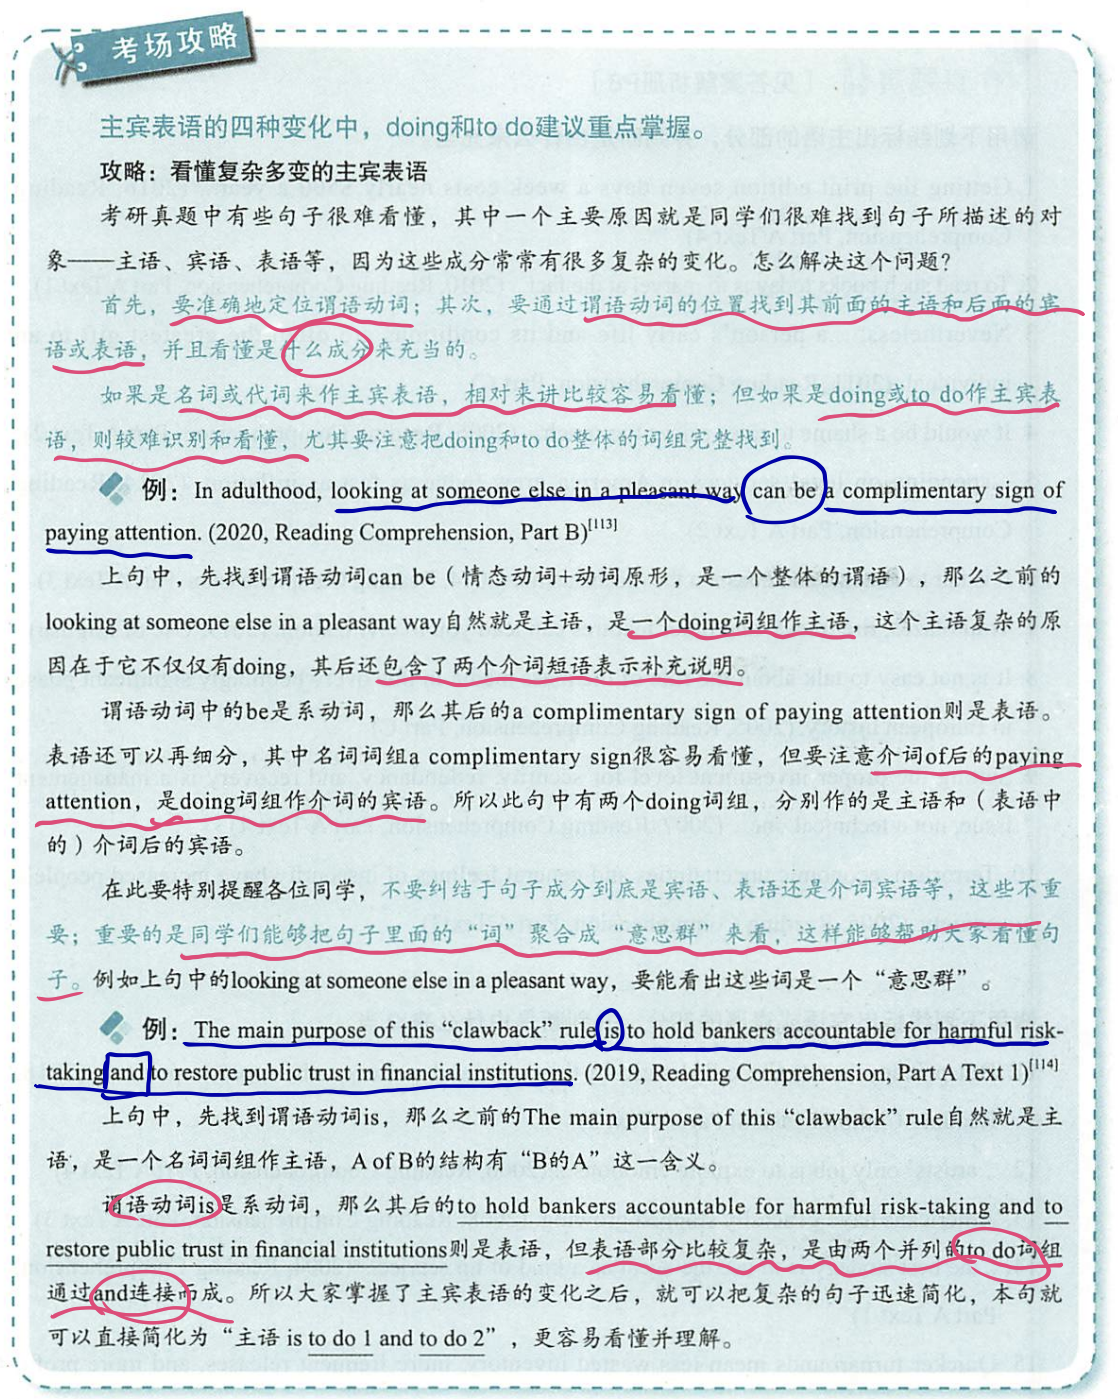 考场攻略
主宾表语的四种变化中，doing和to do建议重点掌握。
攻略：看懂复杂多变的主宾表语
考研真题中有些句子很难看懂，其中一个主要原因就是同学们很难找到句子所描述的对
象——主语、宾语、表语等，因为这些成分常常有很多复杂的变化。怎么解决这个问题？
首先，要准确地定位谓语动词；其次，要通过谓语动词的位置找到其前面的主语和后面的宾
语或表语，并且看懂是什么成分来充当的。
如果是名词或代词来作主宾表语，相对来讲比较容易看懂；但如果是doing或to do作主宾表
语，则较难识别和看懂，尤其要注意把doing和to do整体的词组完整找到。
例：In adulthood, looking at someone else in a pleasant way can be a complimentary sign of
paying attention. (2020, Reading Comprehension, Part B)[113]
上句中，先找到谓语动词can be（情态动词+动词原形，是一个整体的谓语），那么之前的
looking at someone else in a pleasant way自然就是主语，是一个doing词组作主语，这个主语复杂的原
因在于它不仅仅有doing，其后还包含了两个介词短语表示补充说明。
谓语动词中的be是系动词，那么其后的a complimentary sign of paying attention则是表语。
表语还可以再细分，其中名词词组a complimentary sign很容易看懂，但要注意介词of后的paying
attention，是doing词组作介词的宾语。所以此句中有两个doing词组，分别作的是主语和（表语中
的）介词后的宾语。
在此要特别提醒各位同学，不要纠结于句子成分到底是宾语、表语还是介词宾语等，这些不重
要；重要的是同学们能够把句子里面的“词”聚合成“意思群”来看，这样能够帮助大家看懂句
子。例如上句中的looking at someone else in a pleasant way，要能看出这些词是一个“意思群”。
例：The main purpose of this “clawback” rule is to hold bankers accountable for harmful risk-
taking and to restore public trust in financial institutions. (2019, Reading Comprehension, Part A Text 1)[114]
上句中，先找到谓语动词is，那么之前的The main purpose of this “clawback” rule自然就是主
语，是一个名词词组作主语，A of B的结构有“B的A”这一含义。
谓语动词is是系动词，那么其后的to hold bankers accountable for harmful risk-taking and to
restore public trust in financial institutions则是表语，但表语部分比较复杂，是由两个并列的to do词组
通过and连接而成。所以大家掌握了主宾表语的变化之后，就可以把复杂的句子迅速简化，本句就
可以直接简化为“主语 is to do 1 and to do 2”，更容易看懂并理解。